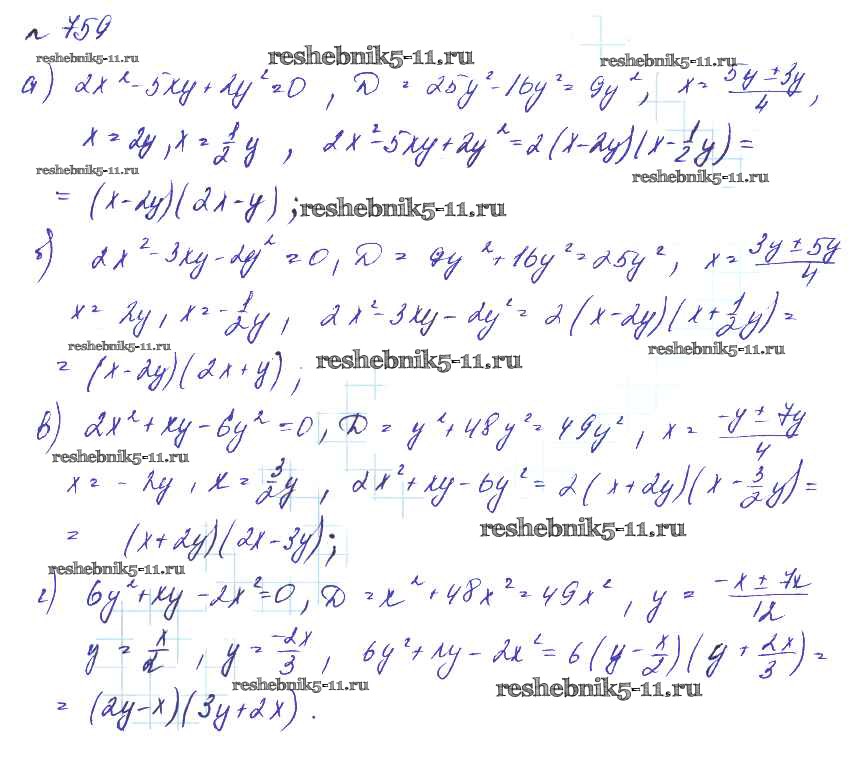 № 759
reshebnik5-11.ru reshebnik5-11.ru reshebnik5-11.ru
а) 2x² - 5xy + 2y² = 0, D = 25y² - 16y² = 9y², x = (5y ± 3y)/4,
x = 2y, x = 1/2 y, 2x² - 5xy + 2y² = 2(x - 2y)(x - 1/2 y) =
reshebnik5-11.ru reshebnik5-11.ru
= (x - 2y)(2x - y); reshebnik5-11.ru
б) 2x² - 3xy - 2y² = 0, D = 9y² + 16y² = 25y², x = (3y ± 5y)/4
x = 2y, x = -1/2 y, 2x² - 3xy - 2y² = 2(x - 2y)(x + 1/2 y) =
reshebnik5-11.ru reshebnik5-11.ru
= (x - 2y)(2x + y); reshebnik5-11.ru
в) 2x² + xy - 6y² = 0, D = y² + 48y² = 49y², x = (-y ± 7y)/4
reshebnik5-11.ru
x = -2y, x = 3/2 y, 2x² + xy - 6y² = 2(x + 2y)(x - 3/2 y) =
= (x + 2y)(2x - 3y); reshebnik5-11.ru
reshebnik5-11.ru
г) 6y² + xy - 2x² = 0, D = x² + 48x² = 49x², y = (-x ± 7x)/12
y = x/2, y = -2x/3, 6y² + xy - 2x² = 6(y - x/2)(y + 2x/3) =
reshebnik5-11.ru reshebnik5-11.ru
= (2y - x)(3y + 2x).